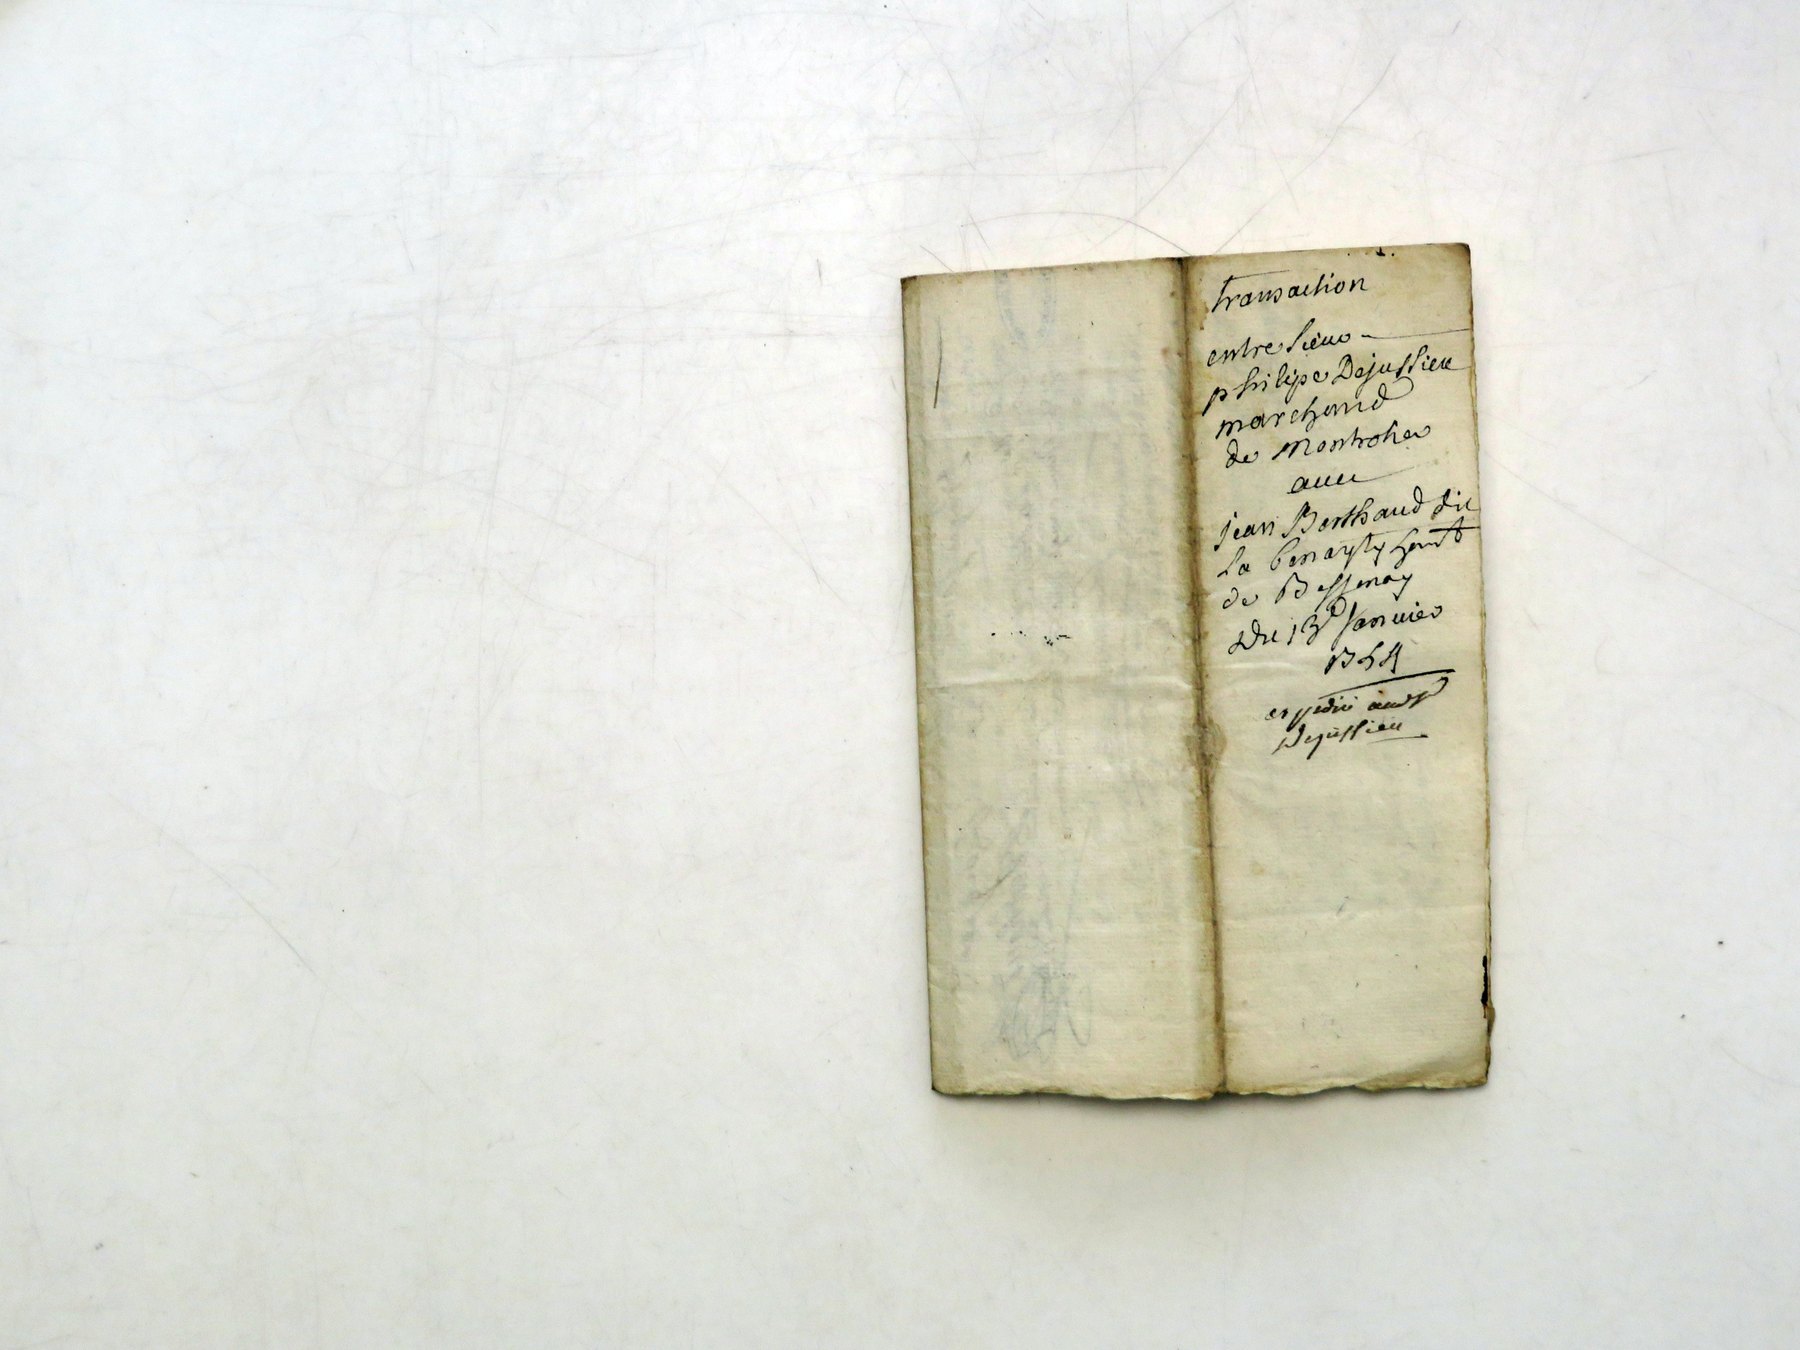 transaction
entre sieur
philipe Dejussieu
marchand
de Montrotier
avec
jean Berthaud dit
La habt
de Bessenay
Du 13e Janvier
expedié aud sr
Dejussieu